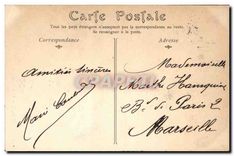 Carte Postale
Tous les pays étrangers n'acceptent pas la correspondance au recto.
Se renseigner à la poste.
Correspondance
Adresse
Amitiés sincères
Marie
Mademoiselle
Marthe
Bd de Paris 2
Marseille